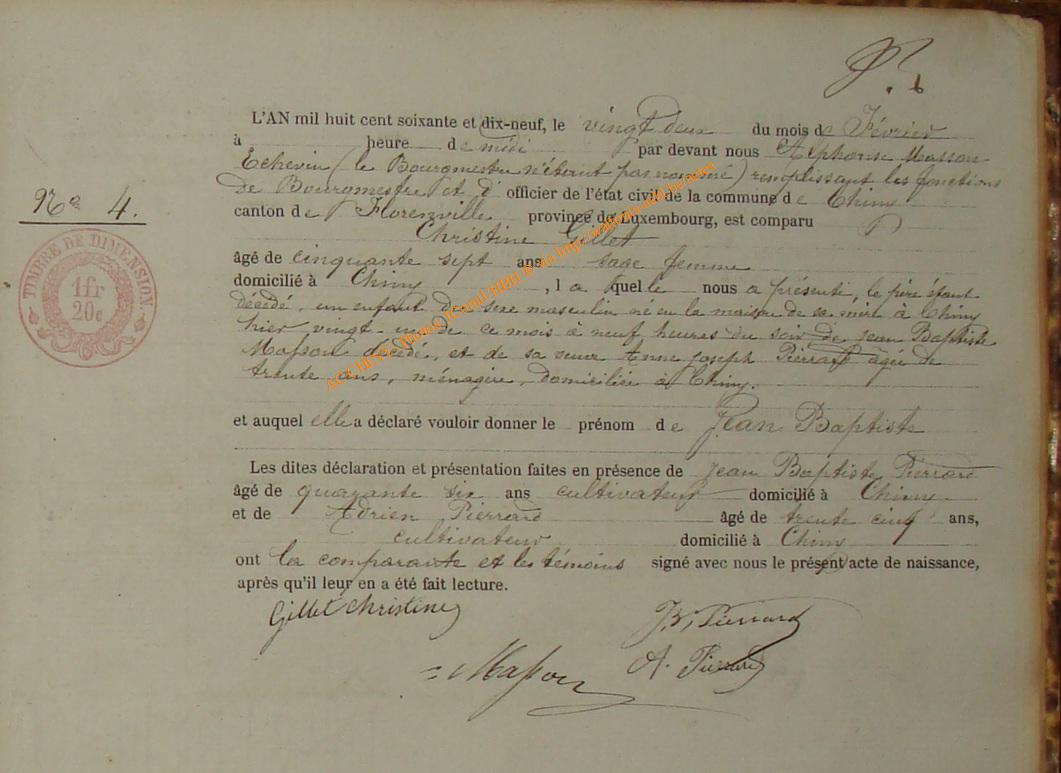 Nº 4.
TIMBRE DE DIMENSION.
1fr
20c
L'AN mil huit cent soixante et dix-neuf, le vingt deux du mois de Février
à heure de midi par devant nous Alphonse Masson
Echevin (le Bourgmestre n'étant pas nommé) remplissant les fonctions
de Bourgmestre et d'officier de l'état civil de la commune de Chiny
canton de Florenville province de Luxembourg, est comparu
Christine Gillet
âgé de cinquante sept ans sage femme
domicilié à Chiny, laquelle nous a présenté, le père étant
décédé, un enfant de sexe masculin né en la maison de sa mère à Chiny
hier vingt-un de ce mois à neuf heures du soir de Jean Baptiste
Masson décédé, et de sa veuve Anne Joseph Pierrard âgée de
trente ans, ménagère, domiciliée à Chiny.
et auquel elle a déclaré vouloir donner le prénom de Jean Baptiste
Les dites déclaration et présentation faites en présence de Jean Baptiste Pierrard
âgé de quarante six ans cultivateur domicilié à Chiny
et de Adrien Pierrard âgé de trente cinq ans,
cultivateur domicilié à Chiny
ont la comparante et les témoins signé avec nous le présent acte de naissance,
après qu'il leur en a été fait lecture.
Gillet Christine J,B, Pierrard
Masson A. Pierrard